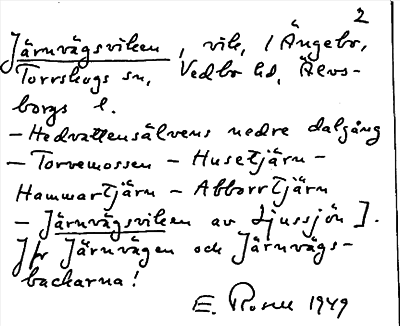 2
Järnvägsviken, vik, i Ängebo,
Torrskogs sn, Vedbo hd, Älvs-
borgs l.
— Hedvattensälvens nedre dalgång
— Torvemossen — Husetjärn —
Hammartjärn — Abborrtjärn
— Järnvägsviken av Ljussjön ].
Jfr Järnvägen och Järnvägs-
backarna!
E. 1949